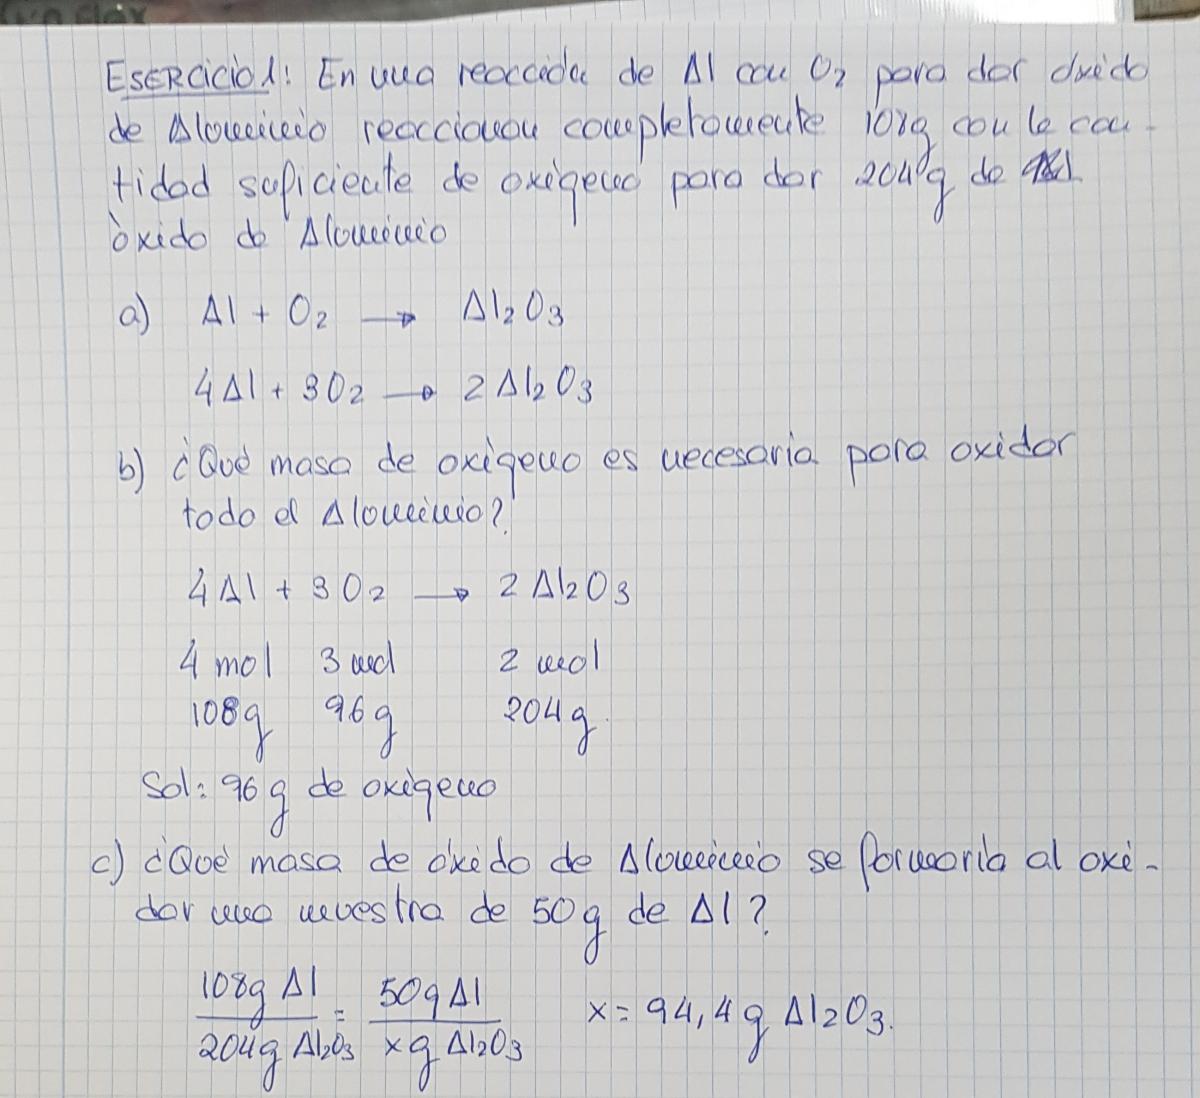 ESERCICIO 1: En una reacción de Al con O2 para dar óxido
de Aluminio reaccionan completamente 108g con la can-
tidad suficiente de oxígeno para dar 204g de
óxido de Aluminio
a) Al + O2 → Al2O3
4Al + 3O2 → 2Al2O3
b) ¿Qué masa de oxígeno es necesaria para oxidar
todo el Aluminio?
4Al + 3O2 → 2Al2O3
4 mol 3 mol 2 mol
108g 96g 204g.
Sol: 96g de oxígeno
c) ¿Qué masa de óxido de Aluminio se formaría al oxi-
dar una muestra de 50g de Al?
108g Al / 204g Al2O3 = 50g Al / xg Al2O3 x = 94,4g Al2O3.